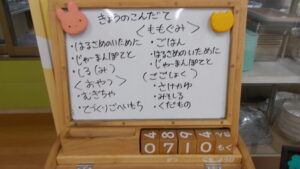 きょうのこんだて
・はるさめのいために
・じゃーまんぽてと
・しる(み)
<おやつ>
・むぎちゃ
・てづくりごへいもち
<ももぐみ>
・ごはん
・はるさめのいために
・じゃーまんぽてと
(ごごしょく)
・さけかゆ
・みそしる
・くだもの